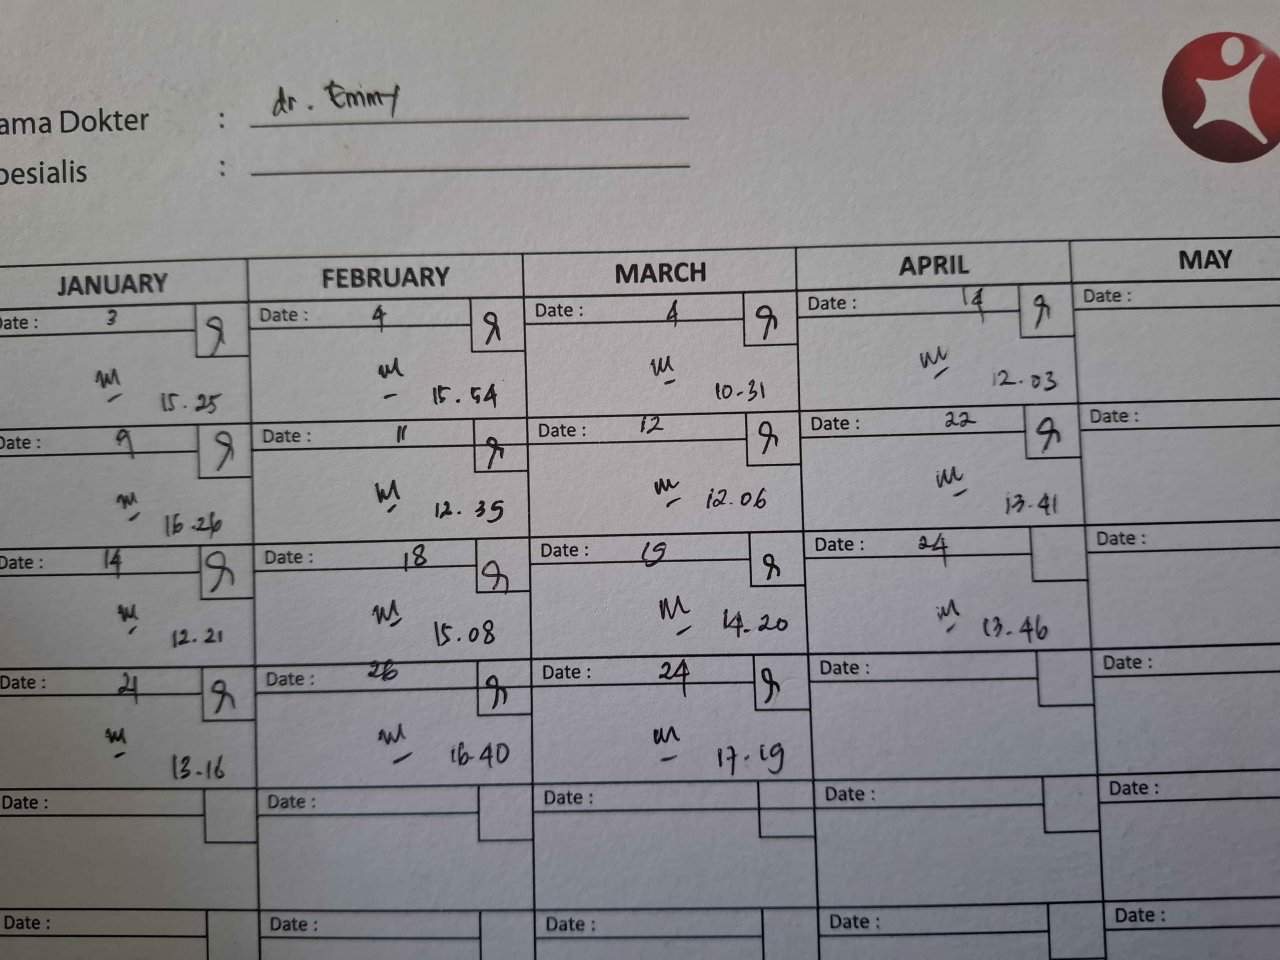 ama Dokter : dr. Emmy
pesialis :
JANUARY FEBRUARY MARCH APRIL MAY
Date : 3 Date : 4 Date : 4 Date : 14 Date :
15.25 15.54 10.31 12.03
Date : 9 Date : 11 Date : 12 Date : 22 Date :
16.26 12.35 12.06 13.41
Date : 14 Date : 18 Date : 19 Date : 24 Date :
12.21 15.08 14.20 13.46
Date : 21 Date : 26 Date : 24 Date : Date :
13.16 16.40 17.19
Date : Date : Date : Date : Date :
Date : Date : Date : Date : Date :